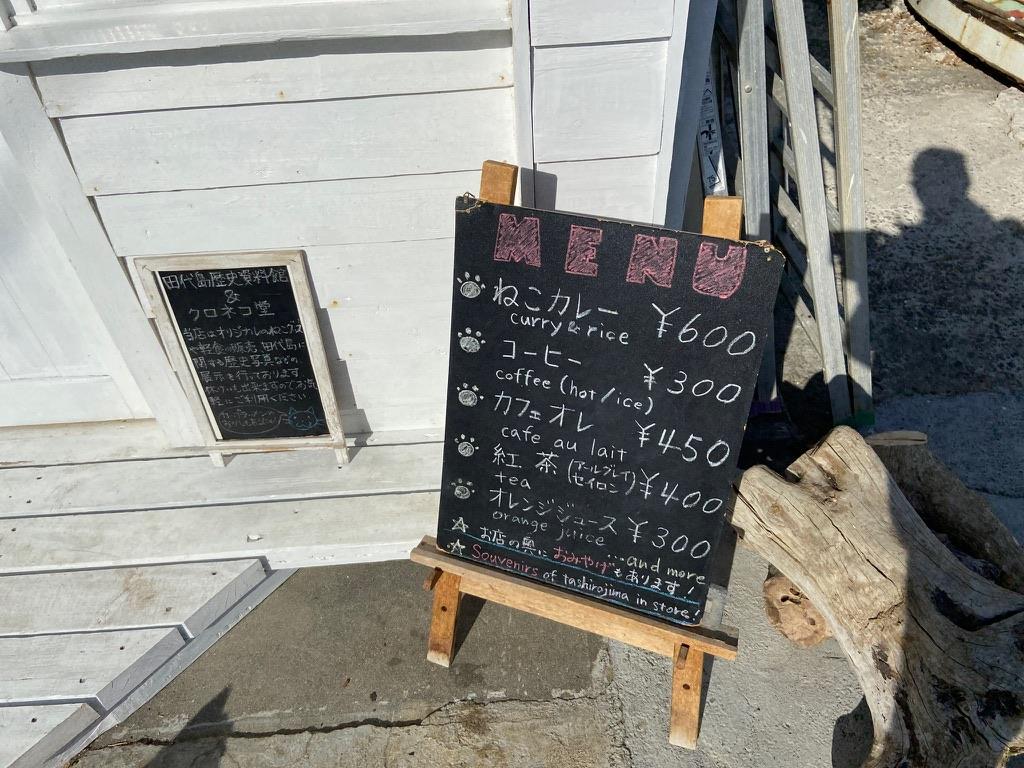 田代島歴史資料館
&
クロネコ堂
当店はオリジナルのねこグッズ
軽食の販売、田代島に
関する歴史写真などの
展示を行っております
お気
軽にご利用ください
MENU
ねこカレー ¥600
curry & rice
コーヒー ¥300
coffee (hot/ice)
カフェオレ ¥450
cafe au lait
紅茶 (アールグレイ セイロン) ¥400
tea
オレンジジュース ¥300
orange juice
...and more
☆ お店の奥に おみやげ もあります!
☆ Souvenirs of tashirojima in store!